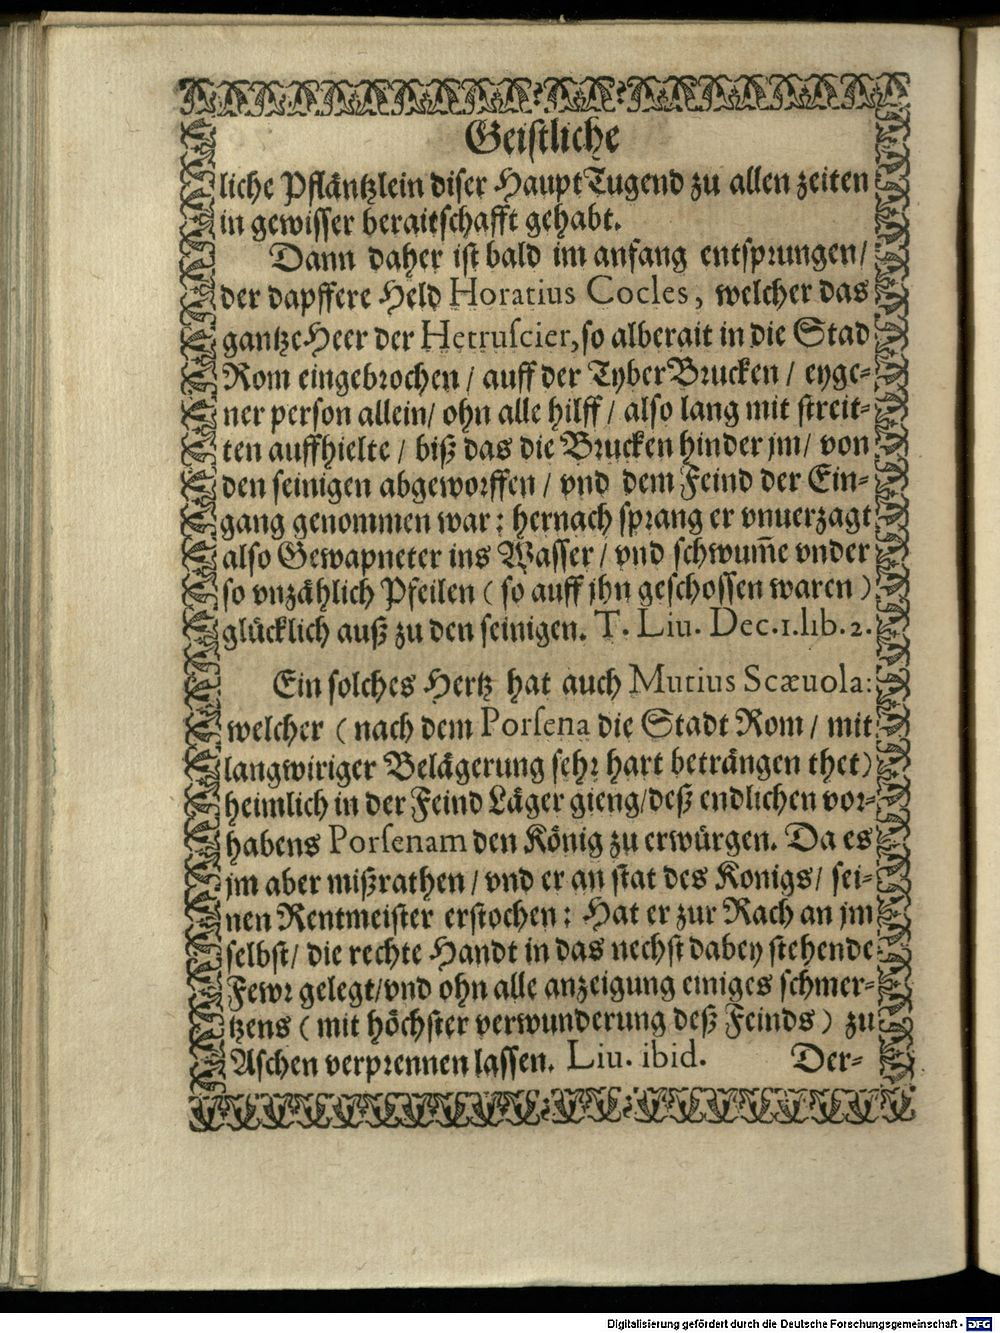 Geistliche
liche Pfläntzlein diser HauptTugend zu allen zeiten
in gewisser beraitschafft gehabt.
Dann daher ist bald im anfang entsprungen/
der dapffere Held Horatius Cocles, welcher das
gantze Heer der Hetruſcier, so alberait in die Stad
Rom eingebrochen / auff der TyberBrucken / eyge-
ner person allein/ ohn alle hilff / also lang mit streit-
ten auffhielte / biß das die Brucken hinder jm/ von
den seinigen abgeworffen / vnd dem Feind der Ein-
gang genommen war: hernach sprang er vnuerzagt
also Gewapneter ins Wasser / vnd schwum̃e vnder
so vnzählich Pfeilen ( so auff jhn geschossen waren )
glücklich auß zu den seinigen. T. Liu. Dec.1.lib.2.
Ein solches Hertz hat auch Mutius Scæuola:
welcher ( nach dem Porſena die Stadt Rom / mit
langwiriger Belägerung sehr hart beträngen thet)
heimlich in der Feind Läger gieng/deß endlichen vor-
habens Porſenam den König zu erwürgen. Da es
jm aber mißrathen / vnd er an stat des Konigs/ sei-
nen Rentmeister erstochen: Hat er zur Rach an jm
selbst/ die rechte Handt in das nechst dabey stehende
Fewr gelegt/vnd ohn alle anzeigung einiges schmer-
tzens ( mit höchster verwunderung deß Feinds ) zu
Aschen verprennen lassen. Liu. ibid. Der-
Digitalisierung gefördert durch die Deutsche Forschungsgemeinschaft - DFG